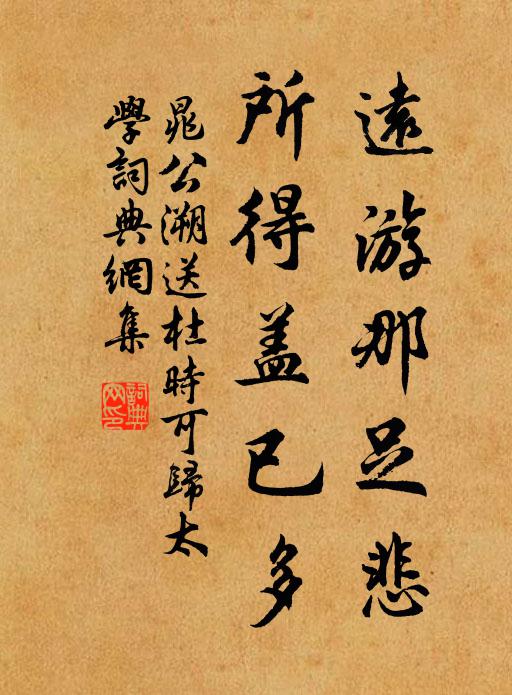 遠游那足悲
所得盖已多
晁公溯送杜時可歸太
學詞典網集
詞典
网印